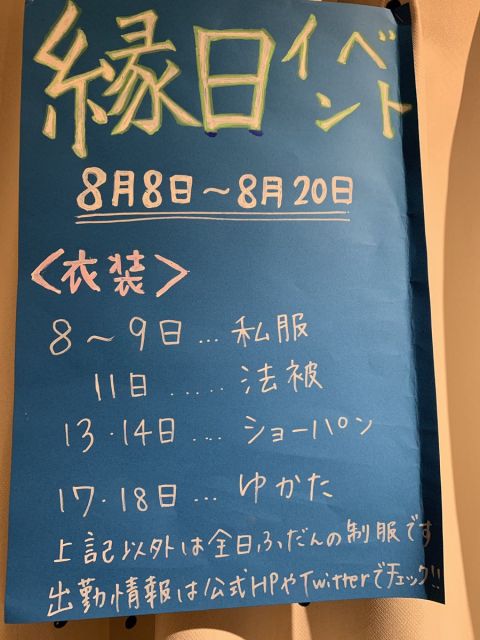 縁日イベント
8月8日～8月20日
〈衣装〉
8～9日…私服
11日……法被
13・14日…ショーパン
17・18日…ゆかた
上記以外は全日ふだんの制服です
出勤情報は公式HPやTwitterでチェック!!